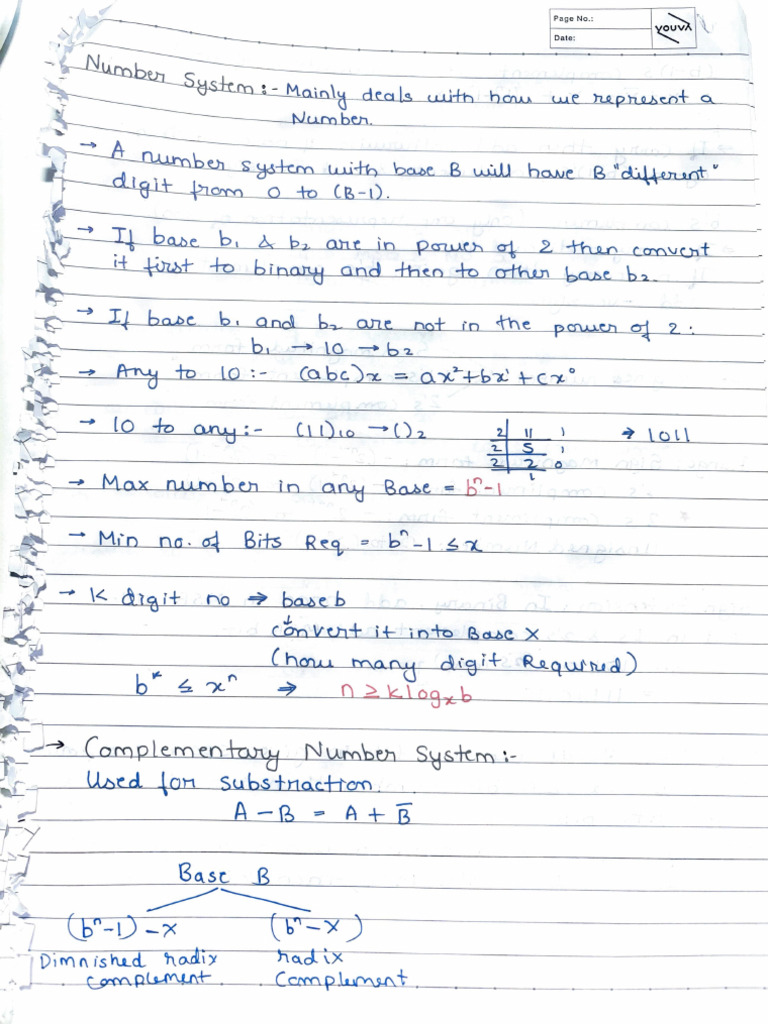 Page No.:
Date:
youva
Number System :- Mainly deals with how we represent a
Number.
→ A number system with base B will have B "different"
digit from 0 to (B-1).
→ If base b₁ & b₂ are in power of 2 then convert
it first to binary and then to other base b₂.
→ If base b₁ and b₂ are not in the power of 2 :
b₁ → 10 → b₂
→ Any to 10 :- (abc)x = ax²+bx¹+cx⁰
→ 10 to any :- (11)₁₀ → ()₂ 2 | 11 1 → 1011
2 | 5 1
2 | 2 0
1
→ Max number in any Base = bⁿ-1
→ Min no. of Bits Req = bⁿ-1 ≤ x
→ K digit no ⇒ base b
↓
convert it into Base X
(how many digit Required)
bᵏ ≤ xⁿ ⇒ n ≥ k logₓ b
→ Complementary Number System :-
Used for substraction.
A - B = A + B̅
Base B
(bⁿ-1) - x (bⁿ- x)
Dimnished radix radix
complement. Complement.